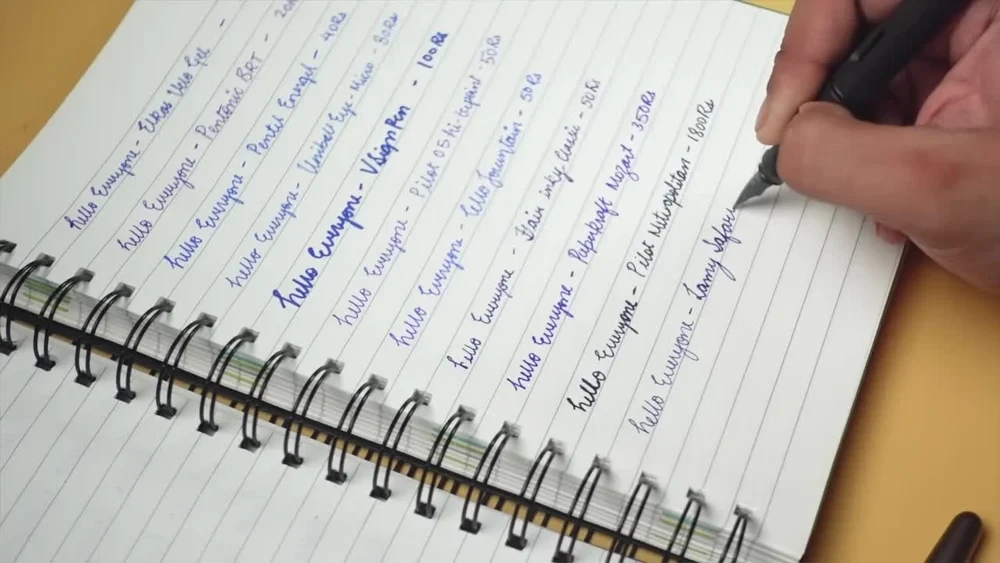 hello Everyone - Elkos Velo Gel -
hello Everyone - Pentonic BRT - 20
hello Everyone - Pentel Energel - 40Rs
hello Everyone - Uniball Eye-Micro - 80Rs
hello Everyone - VSignPen - 100Rs
hello Everyone - Pilot 05 hi-tecpoint - 50Rs
hello Everyone - Cello Fountain - 50Rs
hello Everyone - - 50Rs
hello Everyone - Paperkraft Mozart - 350Rs
hello Everyone - Pilot Metropolitan - 1800Rs
hello Everyone - Lamy Safari